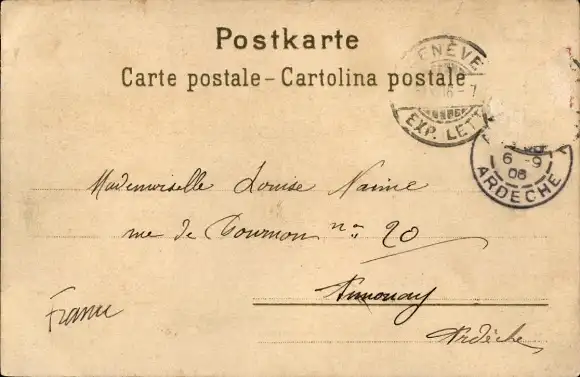 Postkarte
Carte postale – Cartolina postale
GENÈVE
-7
EXP. LETT
6 -9
06
ARDECHE
Mademoiselle Louise
rue de Tournon nº 20
Annonay
Ardèche
France